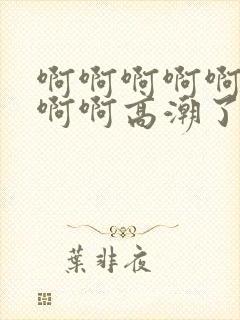 啊啊啊啊啊
啊啊高潮了
葉非夜